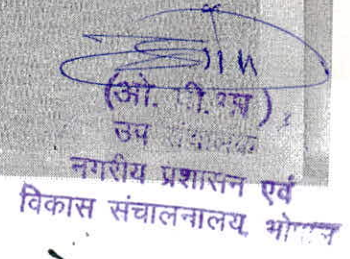 (ओ. पी.
उप संचालक
नगरीय प्रशासन एवं
विकास संचालनालय, भोपाल